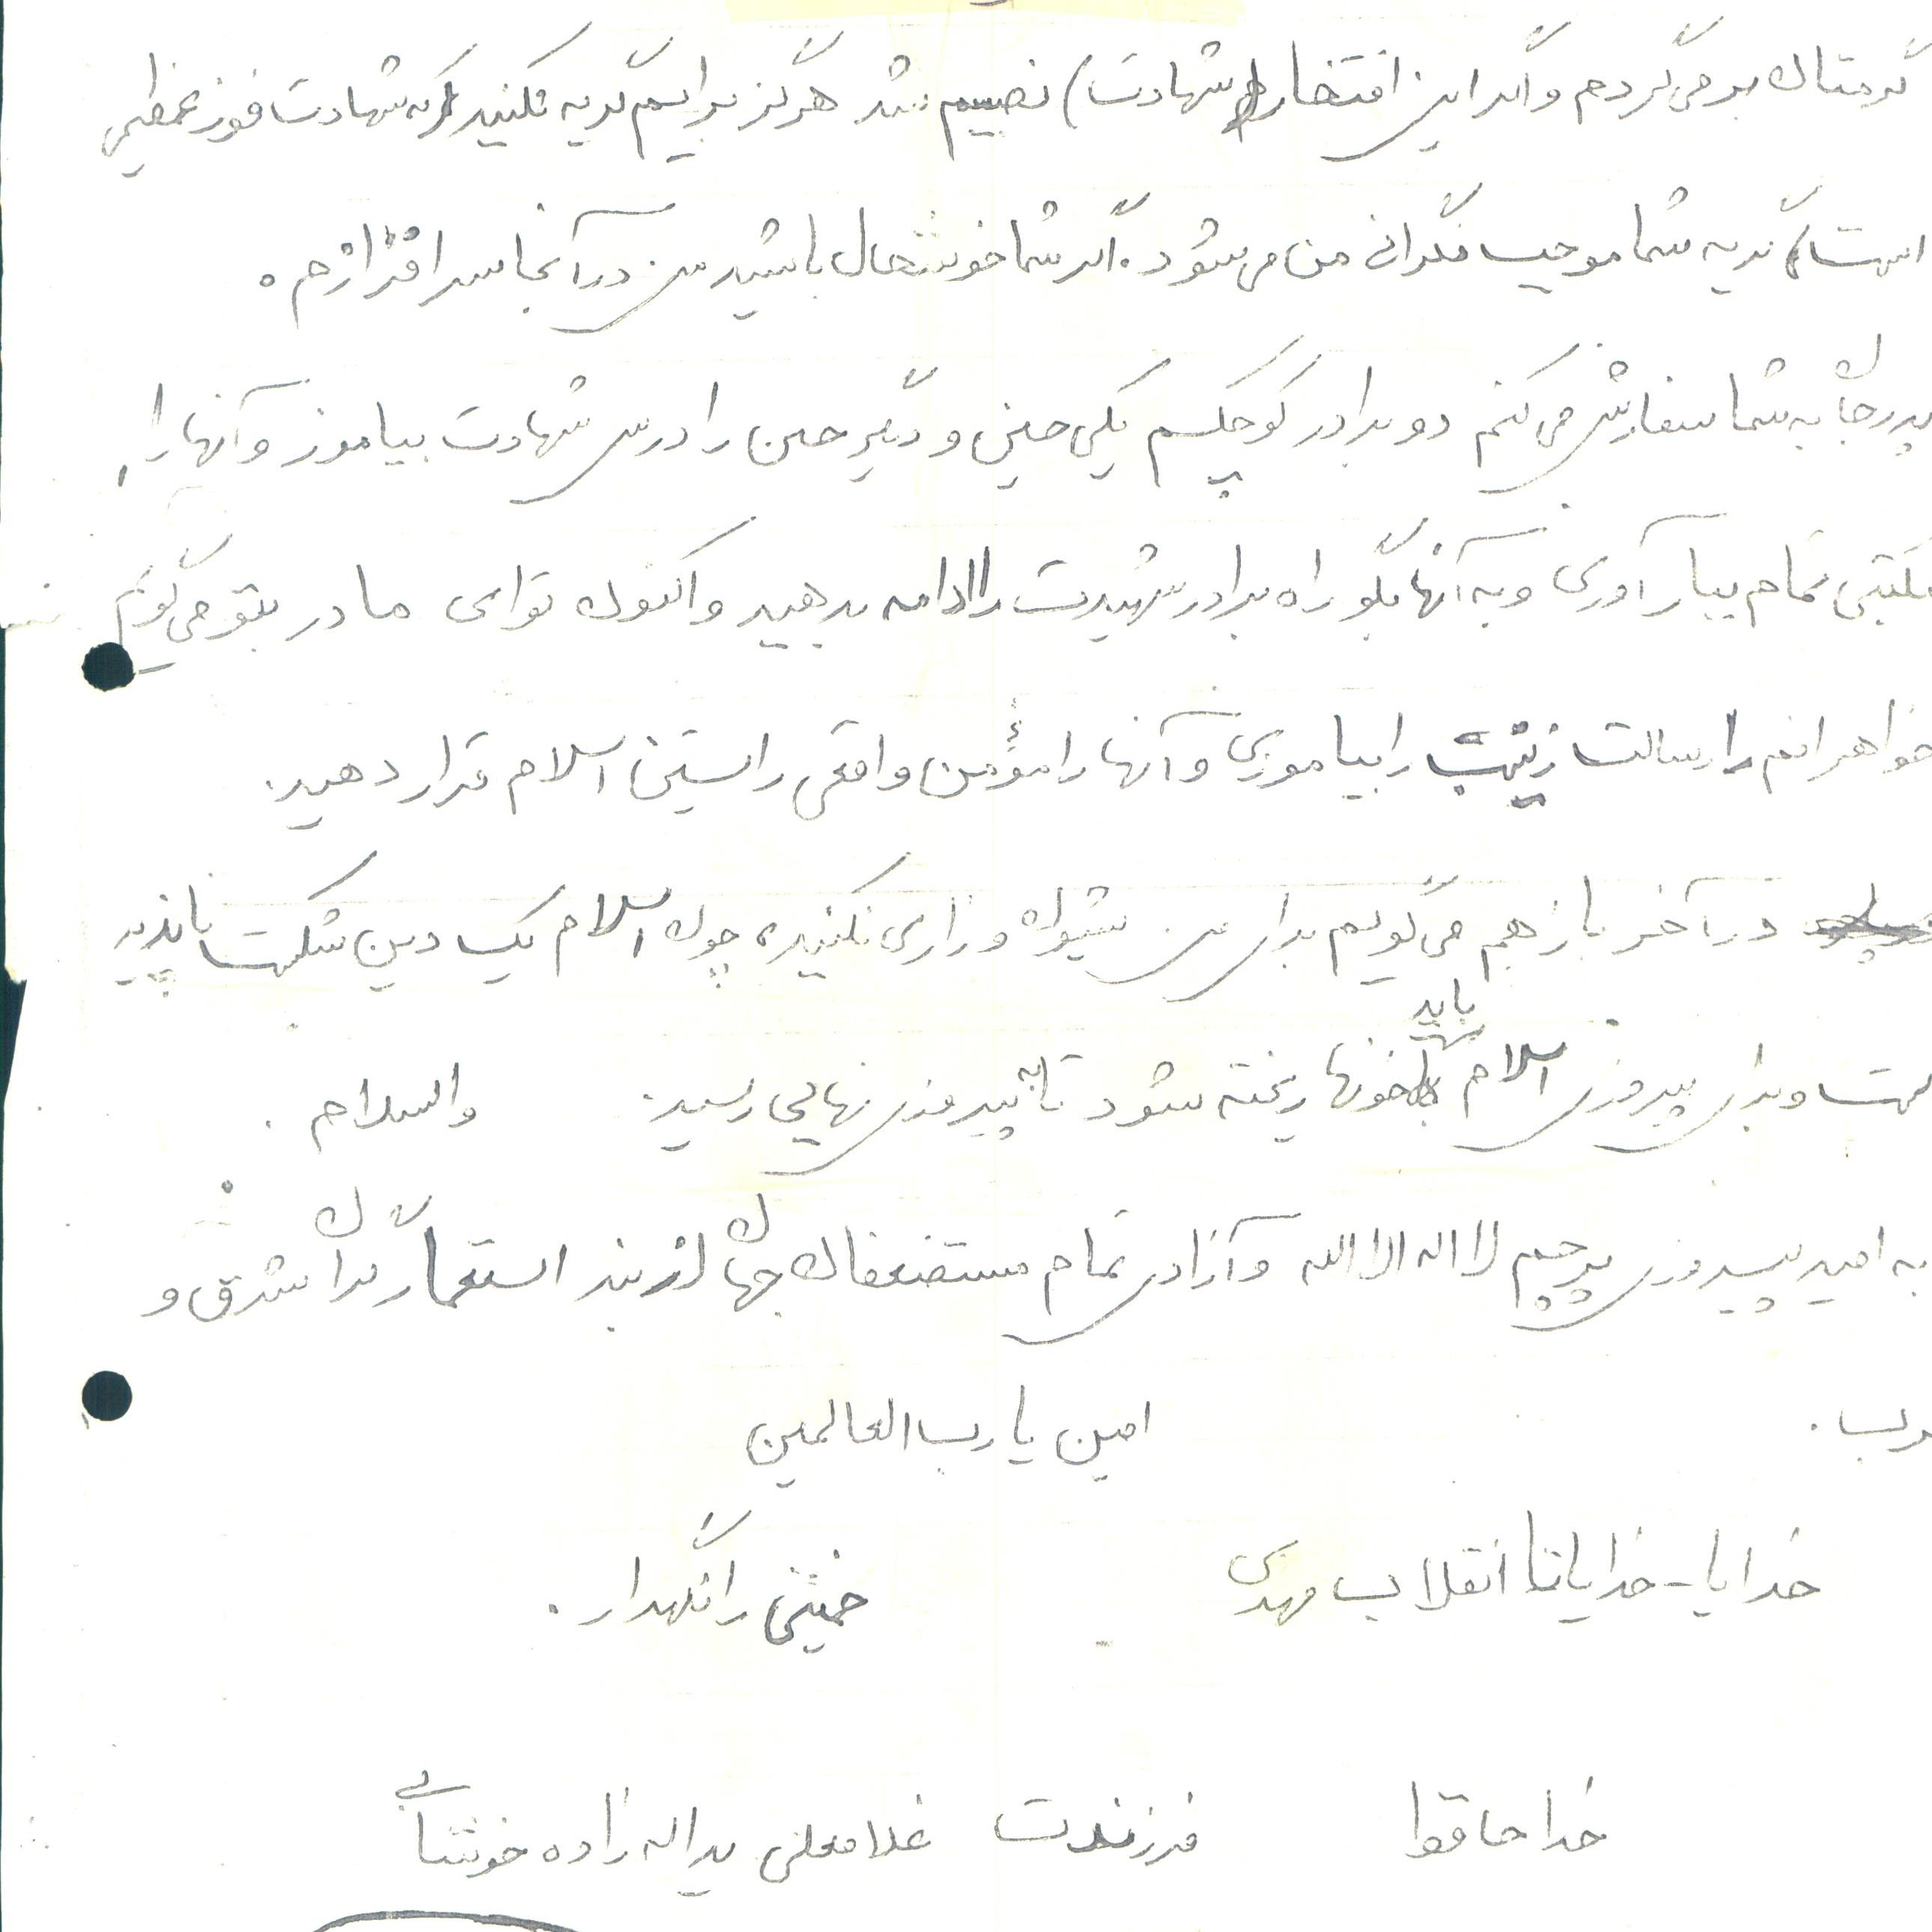 گرمتان برمی‌گردم و اگر این افتخار (شهادت) نصیبم شد هرگز برایم گریه نکنید که شهادت فوز عظیمی
است گریه شما موجب نگرانی من می‌شود. اگر شما خوشحال باشید من در آنجا سرافرازم.
پدر جان به شما سفارش می‌کنم دو برادر کوچکم یکی و دیگر را درس شهادت بیاموز و آنها را
مکتبی تمام ببار آوری و به آنها بگو راه برادر شهیدت را ادامه بدهید و اکنون توای مادر بتو می‌گویم
خواهرانم را رسالت زینب را بیاموزی و آنها را مؤمن واقعی راستین اسلام قرار دهید.
در آخر باز هم می‌گویم برای من شیون و زاری نکنید، چون اسلام یک دین شکست ناپذیر
است و برای پیروزی اسلام باید خونها ریخته شود تا به پیروزی نهایی رسید. والسلام.
به امید پیروزی پرچم لا اله الا الله و آزادی تمام مستضعفان جهان از بند استعمارگران شرق و
غرب.
امین یا رب العالمین
خدایا - خدایا تا انقلاب مهدی خمینی را نگهدار.
خدا حافظ فرزندت غلامعلی یداله زاده خوشابی